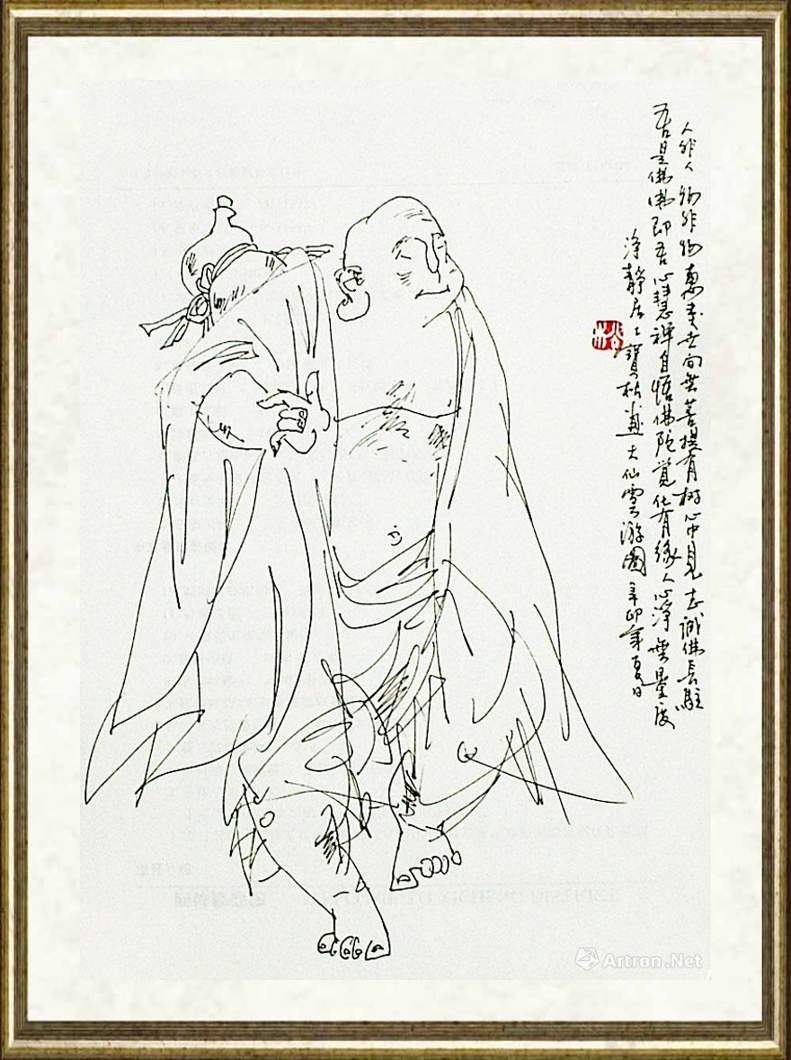 人非人物非物惠里世间无菩提有树心中见志诚佛长驻
吾是佛佛即吾心慧禅自悟佛陀觉化有缘人心净无量度
净静居士寶松画大仙雲游圖辛卯年夏日
Artron.Net